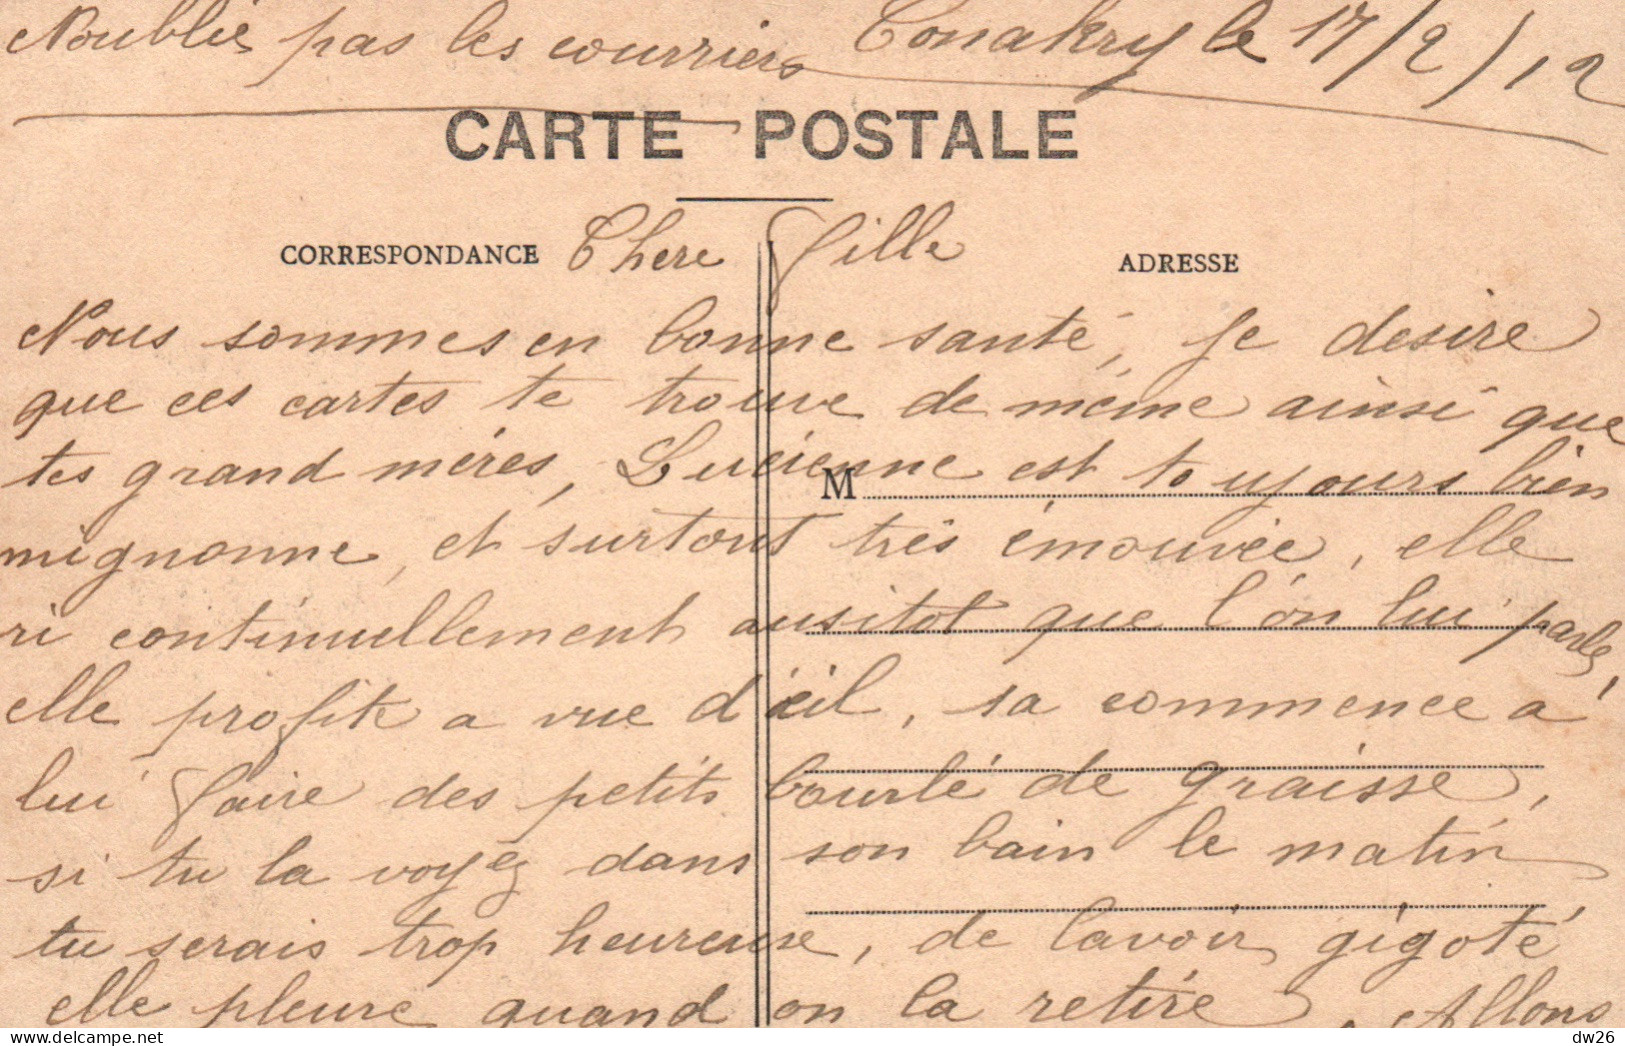 Noublie pas les courriers Conakry le 17/2/12
CARTE POSTALE
CORRESPONDANCE Chere fille ADRESSE
Nous sommes en bonne santé, je desire
que ces cartes te trouve de même ainsi que
tes grand méres, Lucienne est toujours bien
M
mignonne, et surtout très émouvée, elle
ri continuellement ausitot que l'on lui parle,
elle profite a vue d'œil, sa commence a
lui faire des petits bourlé de graisse,
si tu la voyez dans son bain le matin
tu serais trop heureuse, de lavoir gigoté
elle pleure quand on la retire. Allons
dw26